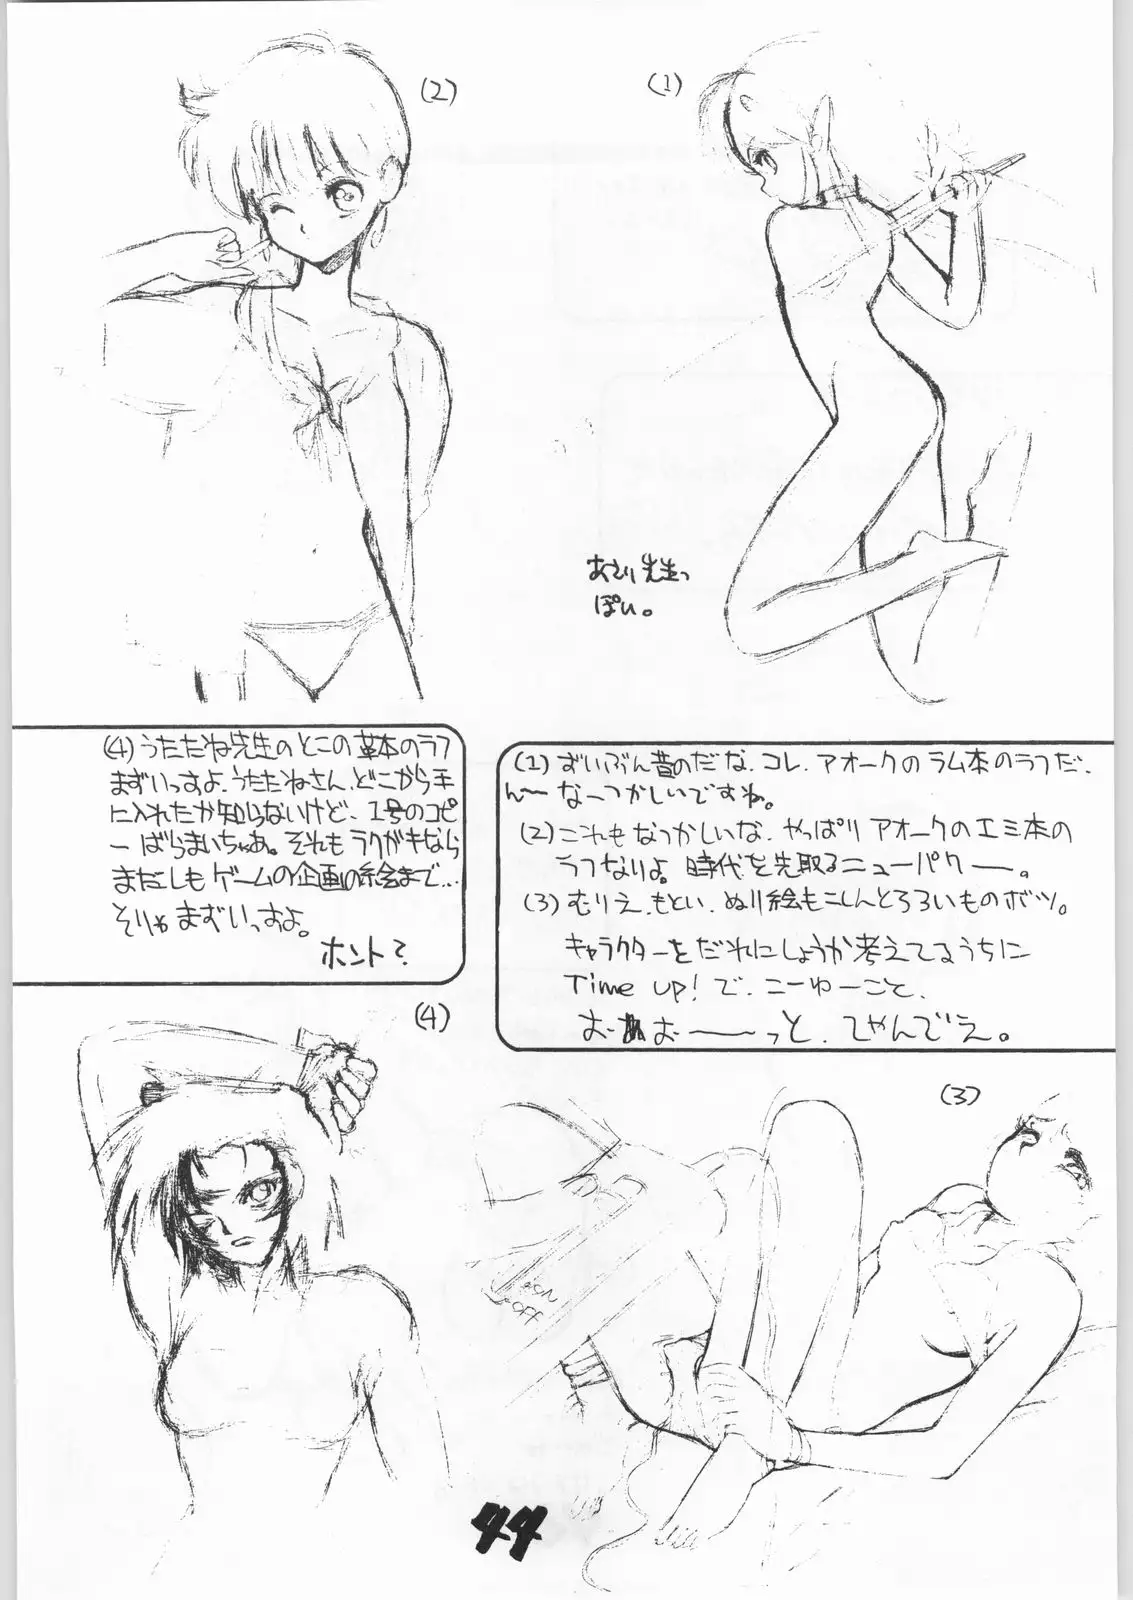 (2)
(1)
あさり先生っ
ぽい。
(4) うたたね先生のとこの革本のラフ
まずいっすよ、うたたねさん、どこから手
に入れたか知らないけど、1号のコピ
ーばらまいちゃあ。それもラクガキなら
まだしもゲームの企画の絵まで…
そりゃまずいっすよ。
ホント?
(1) ずいぶん昔のだな、コレ、アオークのラム本のラフだ、
ん〜なーつかしいですね。
(2) これもなつかしいな、やっぱりアオークのエミ本の
ラフなりよ。時代を先取るニューパワー。
(3) むりえ、もとい、ぬり絵もこしんとろろいものボツ。
キャラクターをだれにしようか考えてるうちに
Time up! で、こーゆーこと、
おーーーっと、てやんでえ。
(4)
(3)
ON
OFF
44